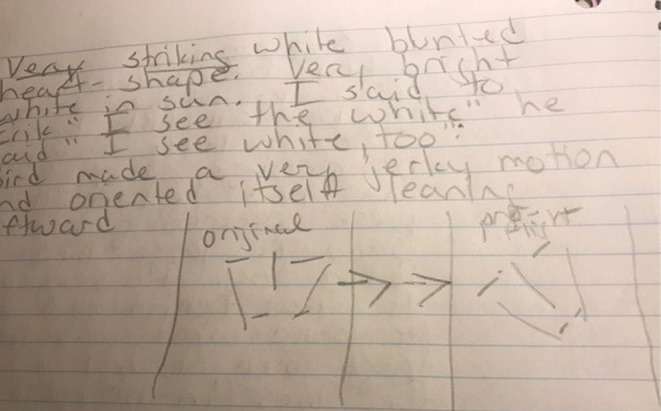 Very striking white blunted
heart-shape. Very bright
white in sun. I said to
Erik "I see the white" he
said "I see white, too".
bird made a very jerky motion
and oriented itself leaning
ftward
original